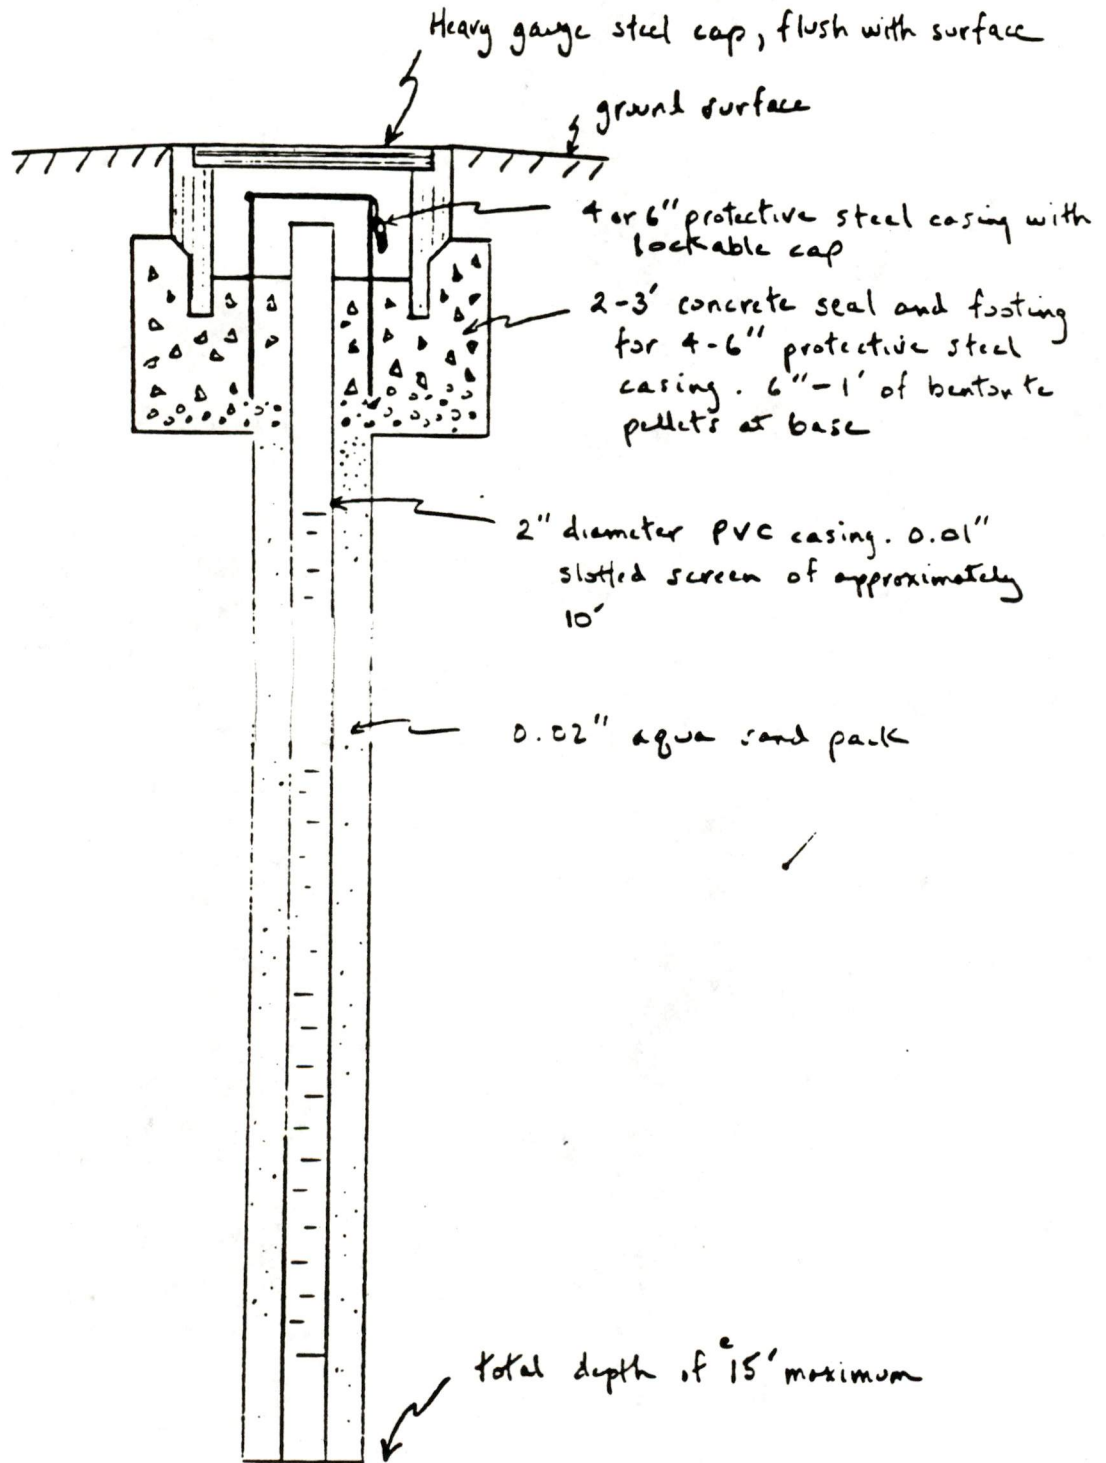 Heavy gauge steel cap, flush with surface
ground surface
4 or 6" protective steel casing with
lockable cap
2-3' concrete seal and footing
for 4-6" protective steel
casing. 6"-1' of bentonite
pellets at base
2" diameter PVC casing. 0.01"
slotted screen of approximately
10'
0.02" aqua sand pack
total depth of 15' maximum